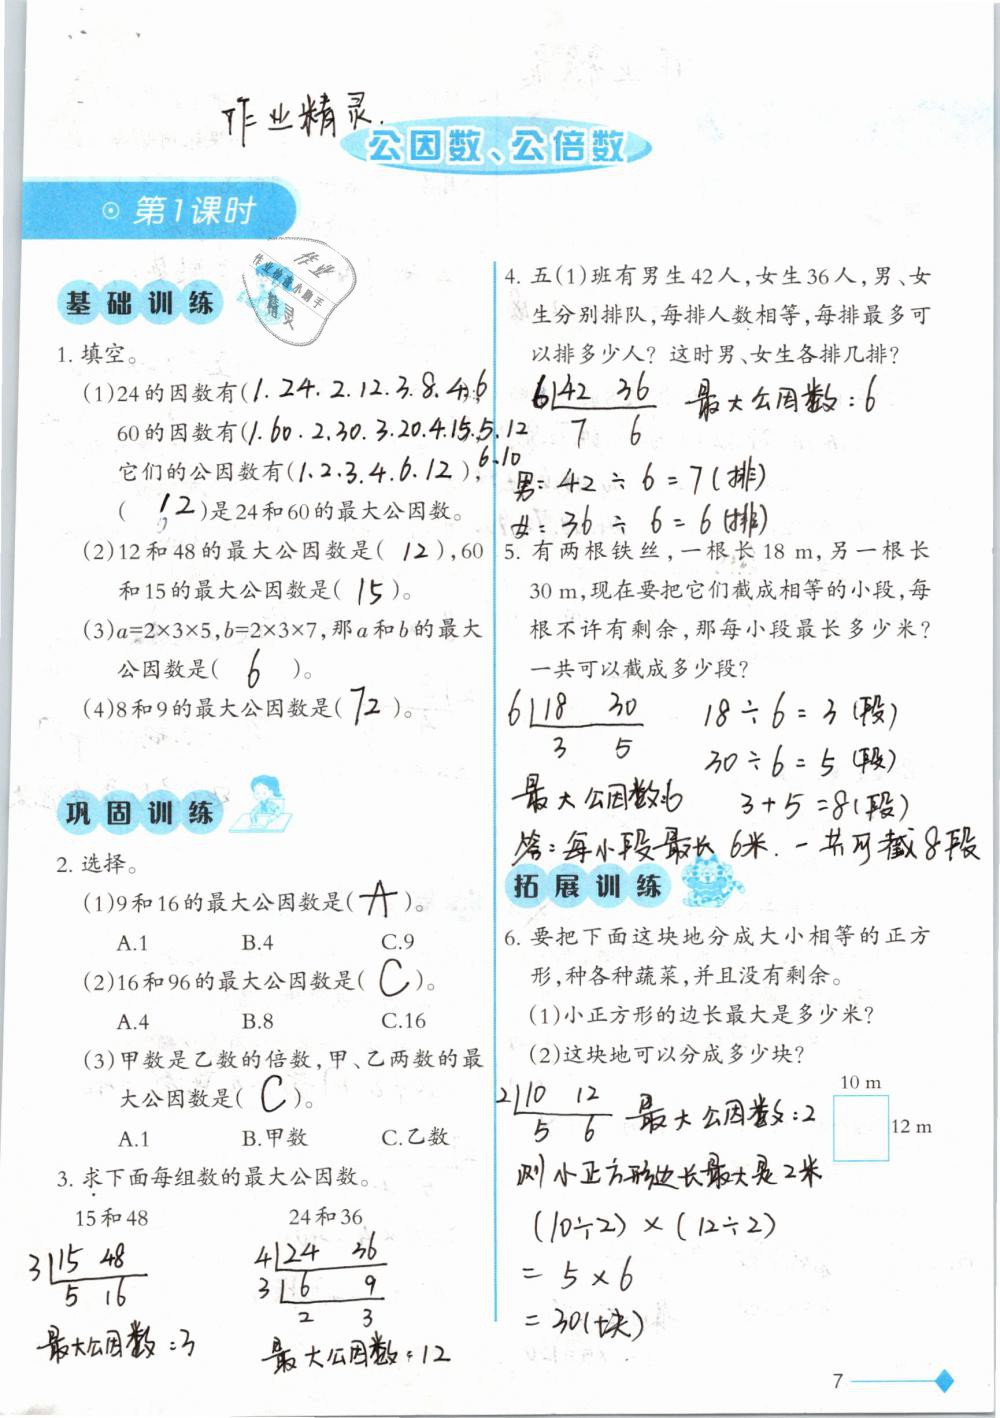 作业精灵.
公因数、公倍数
第1课时
作业
作业检查小助手
精灵
基础训练
1. 填空。
(1)24的因数有(1.24.2.12.3.8.4.6),
60的因数有(1.60.2.30.3.20.4.15.5.12
6.10
它们的公因数有(1.2.3.4.6.12),
( 12 )是24和60的最大公因数。
(2)12和48的最大公因数是( 12 ),60
和15的最大公因数是( 15 )。
(3)a=2×3×5,b=2×3×7,那a和b的最大
公因数是( 6 )。
(4)8和9的最大公因数是( 72 )。
巩固训练
2. 选择。
(1)9和16的最大公因数是( A )。
A.1 B.4 C.9
(2)16和96的最大公因数是( C )。
A.4 B.8 C.16
(3)甲数是乙数的倍数,甲、乙两数的最
大公因数是( C )。
A.1 B.甲数 C.乙数
3. 求下面每组数的最大公因数。
15和48 24和36
3 15 48 4 24 36
5 16 3 6 9
2 3
最大公因数:3 最大公因数:12
4. 五(1)班有男生42人,女生36人,男、女
生分别排队,每排人数相等,每排最多可
以排多少人? 这时男、女生各排几排?
6 42 36 最大公因数:6
7 6
男:42÷6=7(排)
女:36÷6=6(排)
5. 有两根铁丝,一根长18 m,另一根长
30 m,现在要把它们截成相等的小段,每
根不许有剩余,那每小段最长多少米?
一共可以截成多少段?
6 18 30 18÷6=3(段)
3 5 30÷6=5(段)
最大公因数:6 3+5=8(段)
答:每小段最长6米.一共可截8段
拓展训练
6. 要把下面这块地分成大小相等的正方
形,种各种蔬菜,并且没有剩余。
(1)小正方形的边长最大是多少米?
(2)这块地可以分成多少块?
10 m
12 m
2 10 12 最大公因数:2
5 6
则小正方形边长最大是2米
(10÷2)×(12÷2)
=5×6
=30(块)
7